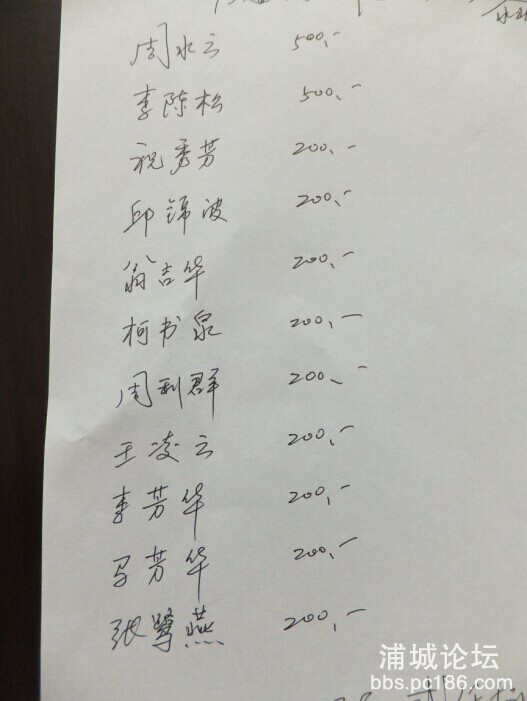 周水云 500,-
李陈松 500,-
祝秀芳 200,-
邱锦波 200,-
翁吉华 200,-
柯书泉 200,-
周利群 200,-
王凌云 200,-
李芳华 200,-
马芳华 200,-
张鹭燕 200,-
浦城论坛
bbs.pc186.com